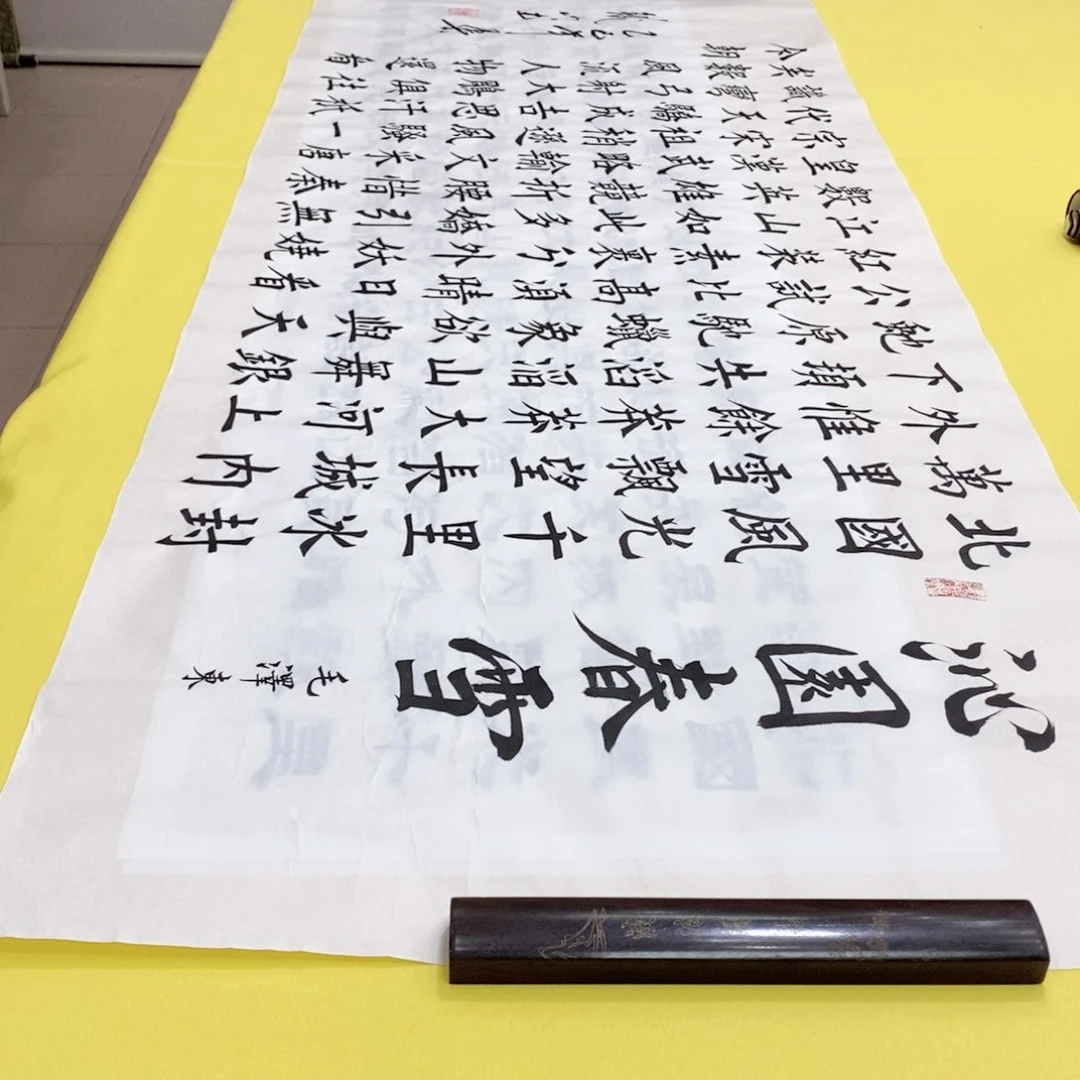 沁園春雪
毛澤東
北國風光千里冰封
萬里雪飄望長城内
外惟餘莽莽大河上
下頓失滔滔山舞銀
蛇原馳蠟象欲與天
公試比高須晴日看
紅裝素裹分外妖嬈
江山如此多嬌引無
數英雄競折腰惜秦
皇漢武略輸文采唐
宗宋祖稍遜風騷一
代天驕成吉思汗祇
識彎弓射大鵰俱往
矣數風流人物還看
今朝
乙巳年夏